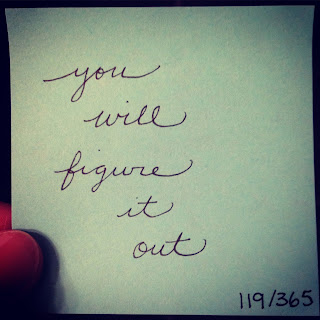 you
will
figure
it
out
119/365